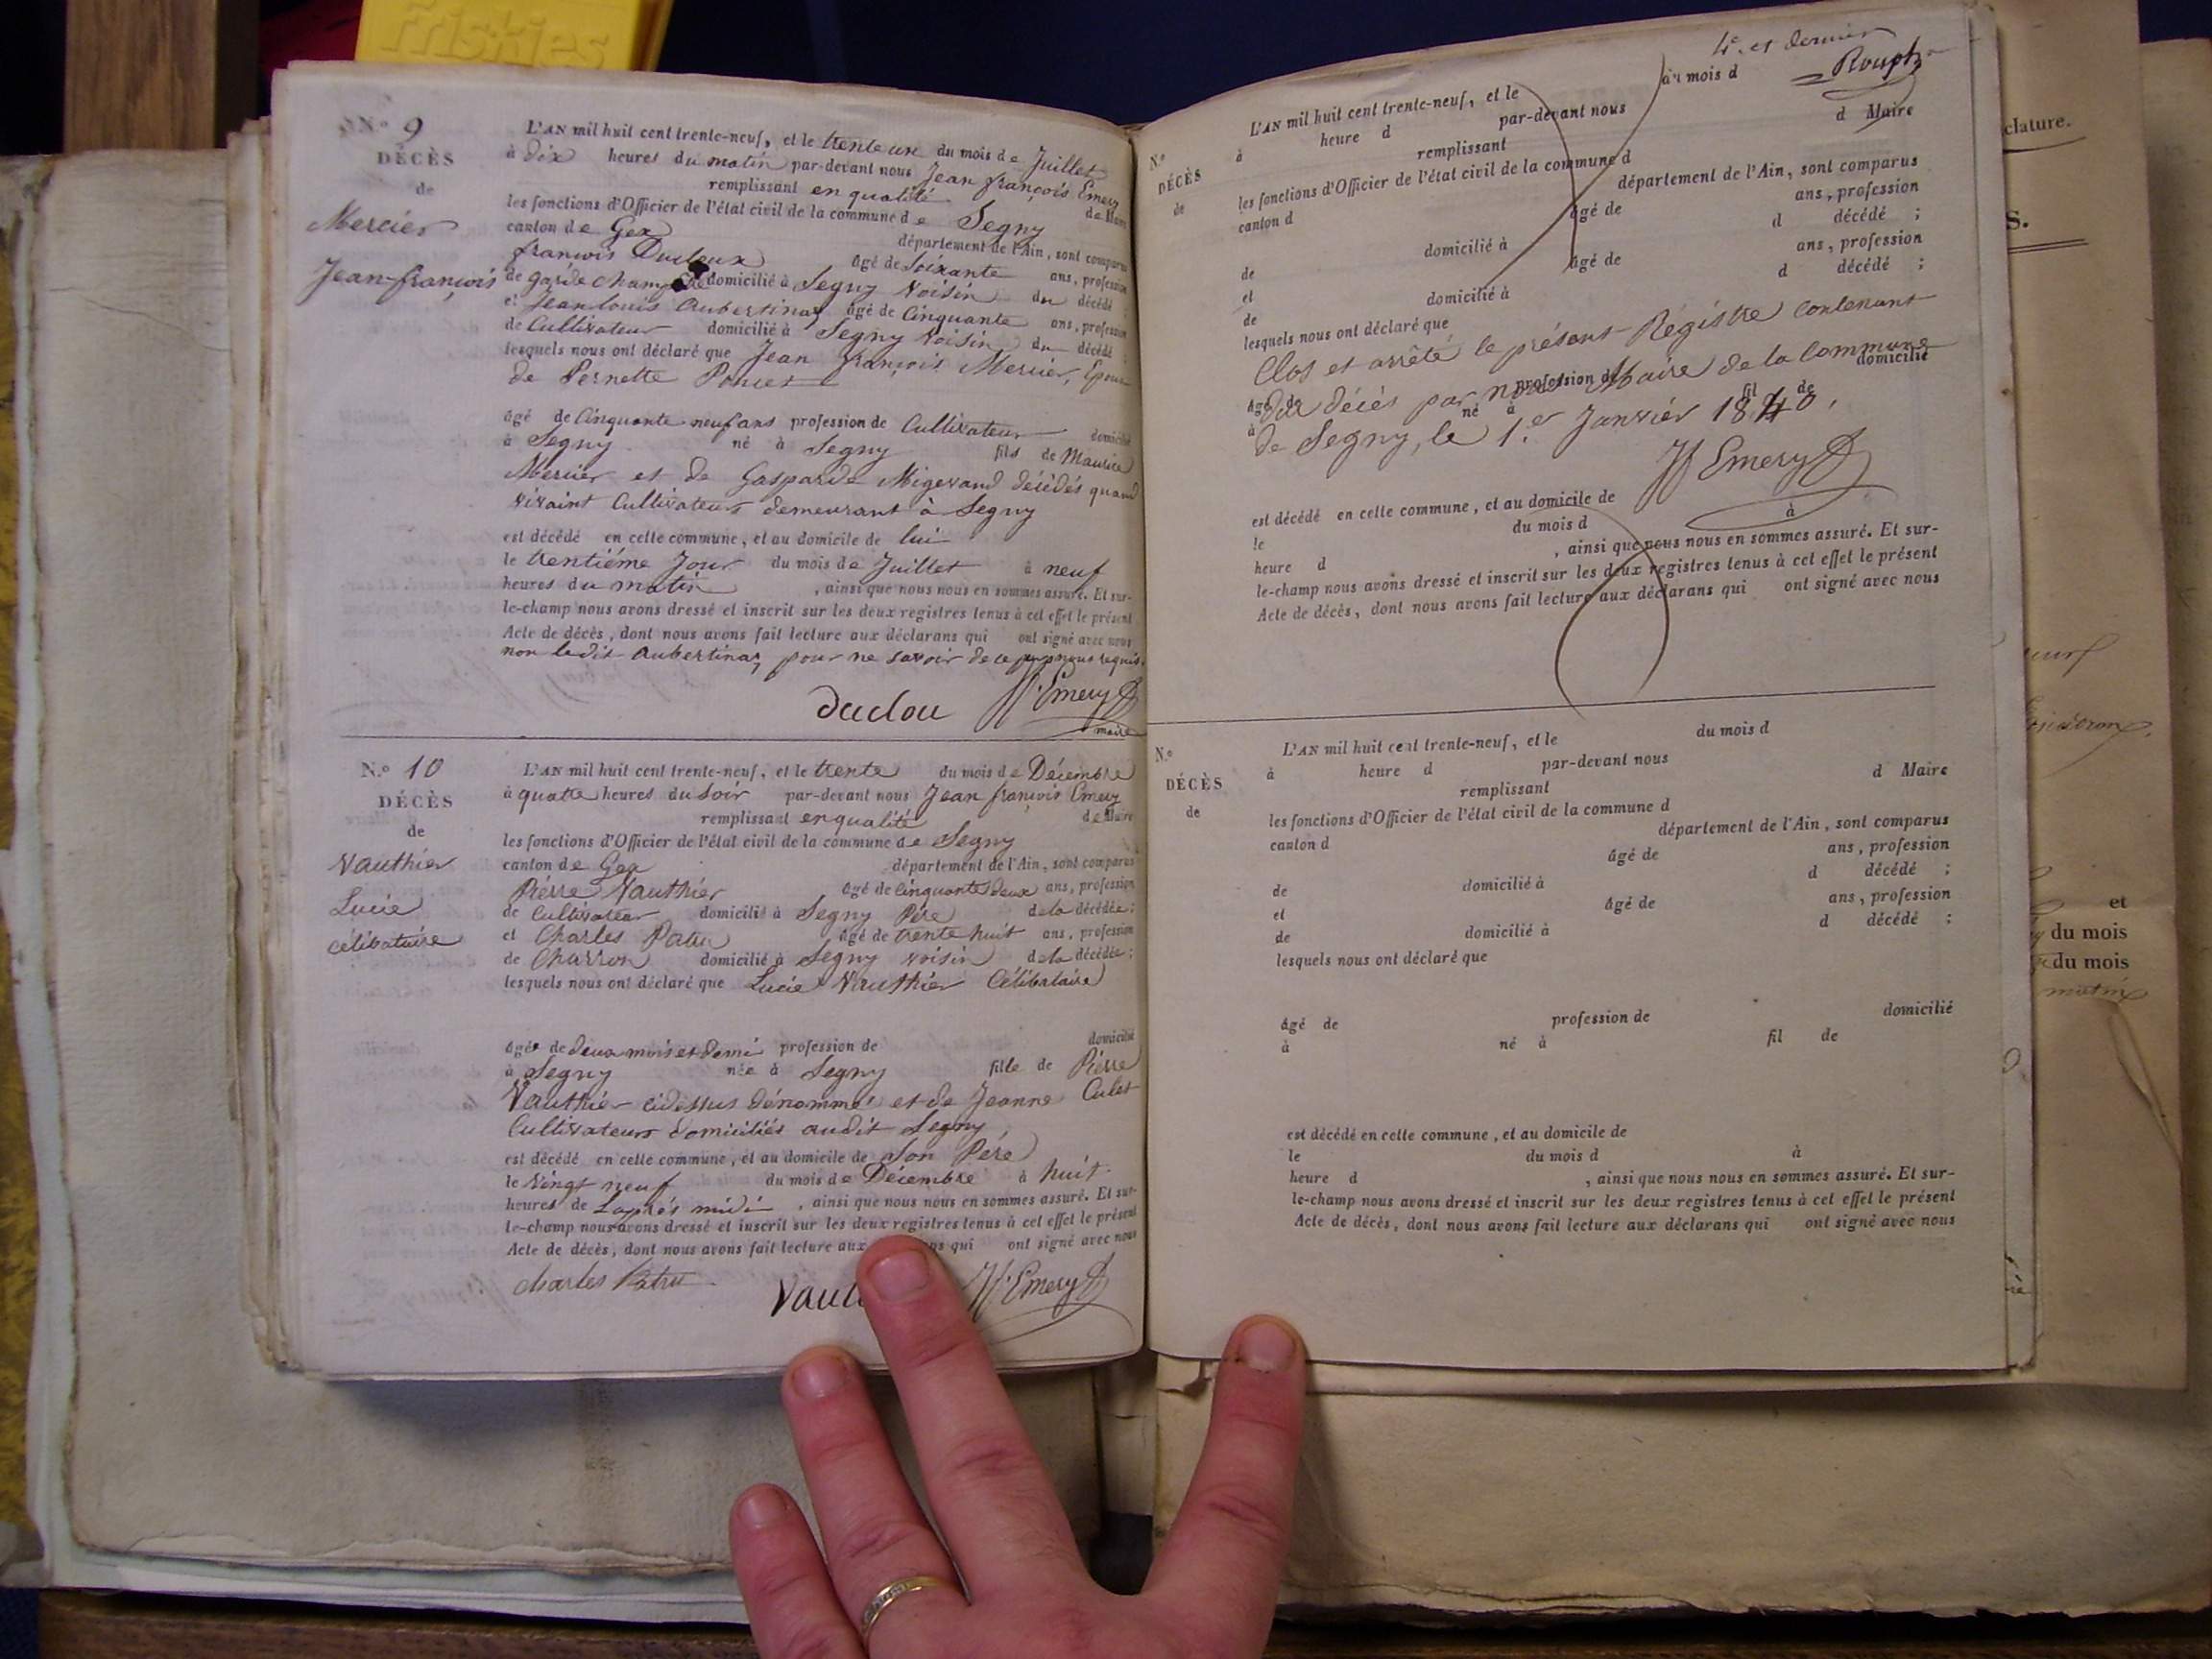 Friskies
N.º 9
DÉCÈS
de
Mercier
Jean-françois
L'AN mil huit cent trente-neuf, et le trente un du mois de Juillet
à dix heures du matin par-devant nous Jean françois Emery
remplissant en qualité de Maire
les fonctions d'Officier de l'état civil de la commune de Segny
canton de Gex département de l'Ain, sont comparus
françois Ducloux âgé de Soixante ans, profession
de garde champêtre domicilié à Segny Voisin du décédé ;
et Jean louis Aubertinaz âgé de Cinquante ans, profession
de Cultivateur domicilié à Segny Voisin du décédé ;
lesquels nous ont déclaré que Jean françois Mercier, Epoux
de Pernette Poncet
âgé de Cinquante neuf ans profession de Cultivateur domicilié
à Segny né à Segny fils de Maurice
Mercier et de Gasparde Migerand décédés quand
vivaint Cultivateurs demeurant à Segny
est décédé en cette commune, et au domicile de lui
le trentiéme Jour du mois de Juillet à neuf
heures du matin , ainsi que nous nous en sommes assuré. Et sur-
le-champ nous avons dressé et inscrit sur les deux registres tenus à cet effet le présent
Acte de décès, dont nous avons fait lecture aux déclarans qui ont signé avec nous
non ledit Aubertinaz pour ne savoir de ce requis.
duclou Jf. Emery
maire
N.º 10
DÉCÈS
de
Vauthier
Lucie
célibataire
L'AN mil huit cent trente-neuf, et le trente du mois de Décembre
à quatre heures du Soir par-devant nous Jean françois Emery
remplissant en qualité de Maire
les fonctions d'Officier de l'état civil de la commune de Segny
canton de Gex département de l'Ain, sont comparus
Piérre Vauthier âgé de cinquante deux ans, profession
de Cultivateur domicilié à Segny Pére de la décédée ;
et Charles Patru âgé de trente huit ans, profession
de Charron domicilié à Segny voisin de la décédée ;
lesquels nous ont déclaré que Lucie Vauthier Célibataire
âgée de deux mois et demi profession de domicilié
à Segny née à Segny fille de Piérre
Vauthier cidessus dénommé et de Jeanne Culet
Cultivateurs domiciliés audit Segny,
est décédé en cette commune, et au domicile de Son Pére
le Vingt neuf du mois de Décembre à huit
heures de L'aprés midi , ainsi que nous nous en sommes assuré. Et sur-
le-champ nous avons dressé et inscrit sur les deux registres tenus à cet effet le présent
Acte de décès, dont nous avons fait lecture aux qui ont signé avec nous
charles Patru Jf. Emery
4.e et dernier
Roupt
N.º
DÉCÈS
de
L'AN mil huit cent trente-neuf, et le du mois d
à heure d par-devant nous
remplissant d Maire
les fonctions d'Officier de l'état civil de la commune d
canton d département de l'Ain, sont comparus
âgé de ans, profession
de domicilié à d décédé ;
et âgé de ans, profession
de domicilié à d décédé ;
lesquels nous ont déclaré que
Clos et arrêté le présent Régistre contenant
âgé de profession de domicilié
dix décés par nous Maire de la Commune
à né à fil de
de Segny, le 1.er Janvier 1840.
Jf Emery
est décédé en cette commune, et au domicile de
le du mois d à
heure d , ainsi que nous nous en sommes assuré. Et sur-
le-champ nous avons dressé et inscrit sur les deux registres tenus à cet effet le présent
Acte de décès, dont nous avons fait lecture aux déclarans qui ont signé avec nous
N.º
DÉCÈS
de
L'AN mil huit cent trente-neuf, et le du mois d
à heure d par-devant nous
remplissant d Maire
les fonctions d'Officier de l'état civil de la commune d
canton d département de l'Ain, sont comparus
âgé de ans, profession
de domicilié à d décédé ;
et âgé de ans, profession
de domicilié à d décédé ;
lesquels nous ont déclaré que
âgé de profession de domicilié
à né à fil de
est décédé en cette commune, et au domicile de
le du mois d à
heure d , ainsi que nous nous en sommes assuré. Et sur-
le-champ nous avons dressé et inscrit sur les deux registres tenus à cet effet le présent
Acte de décès, dont nous avons fait lecture aux déclarans qui ont signé avec nous
clature.
S.
et
du mois
du mois
matin